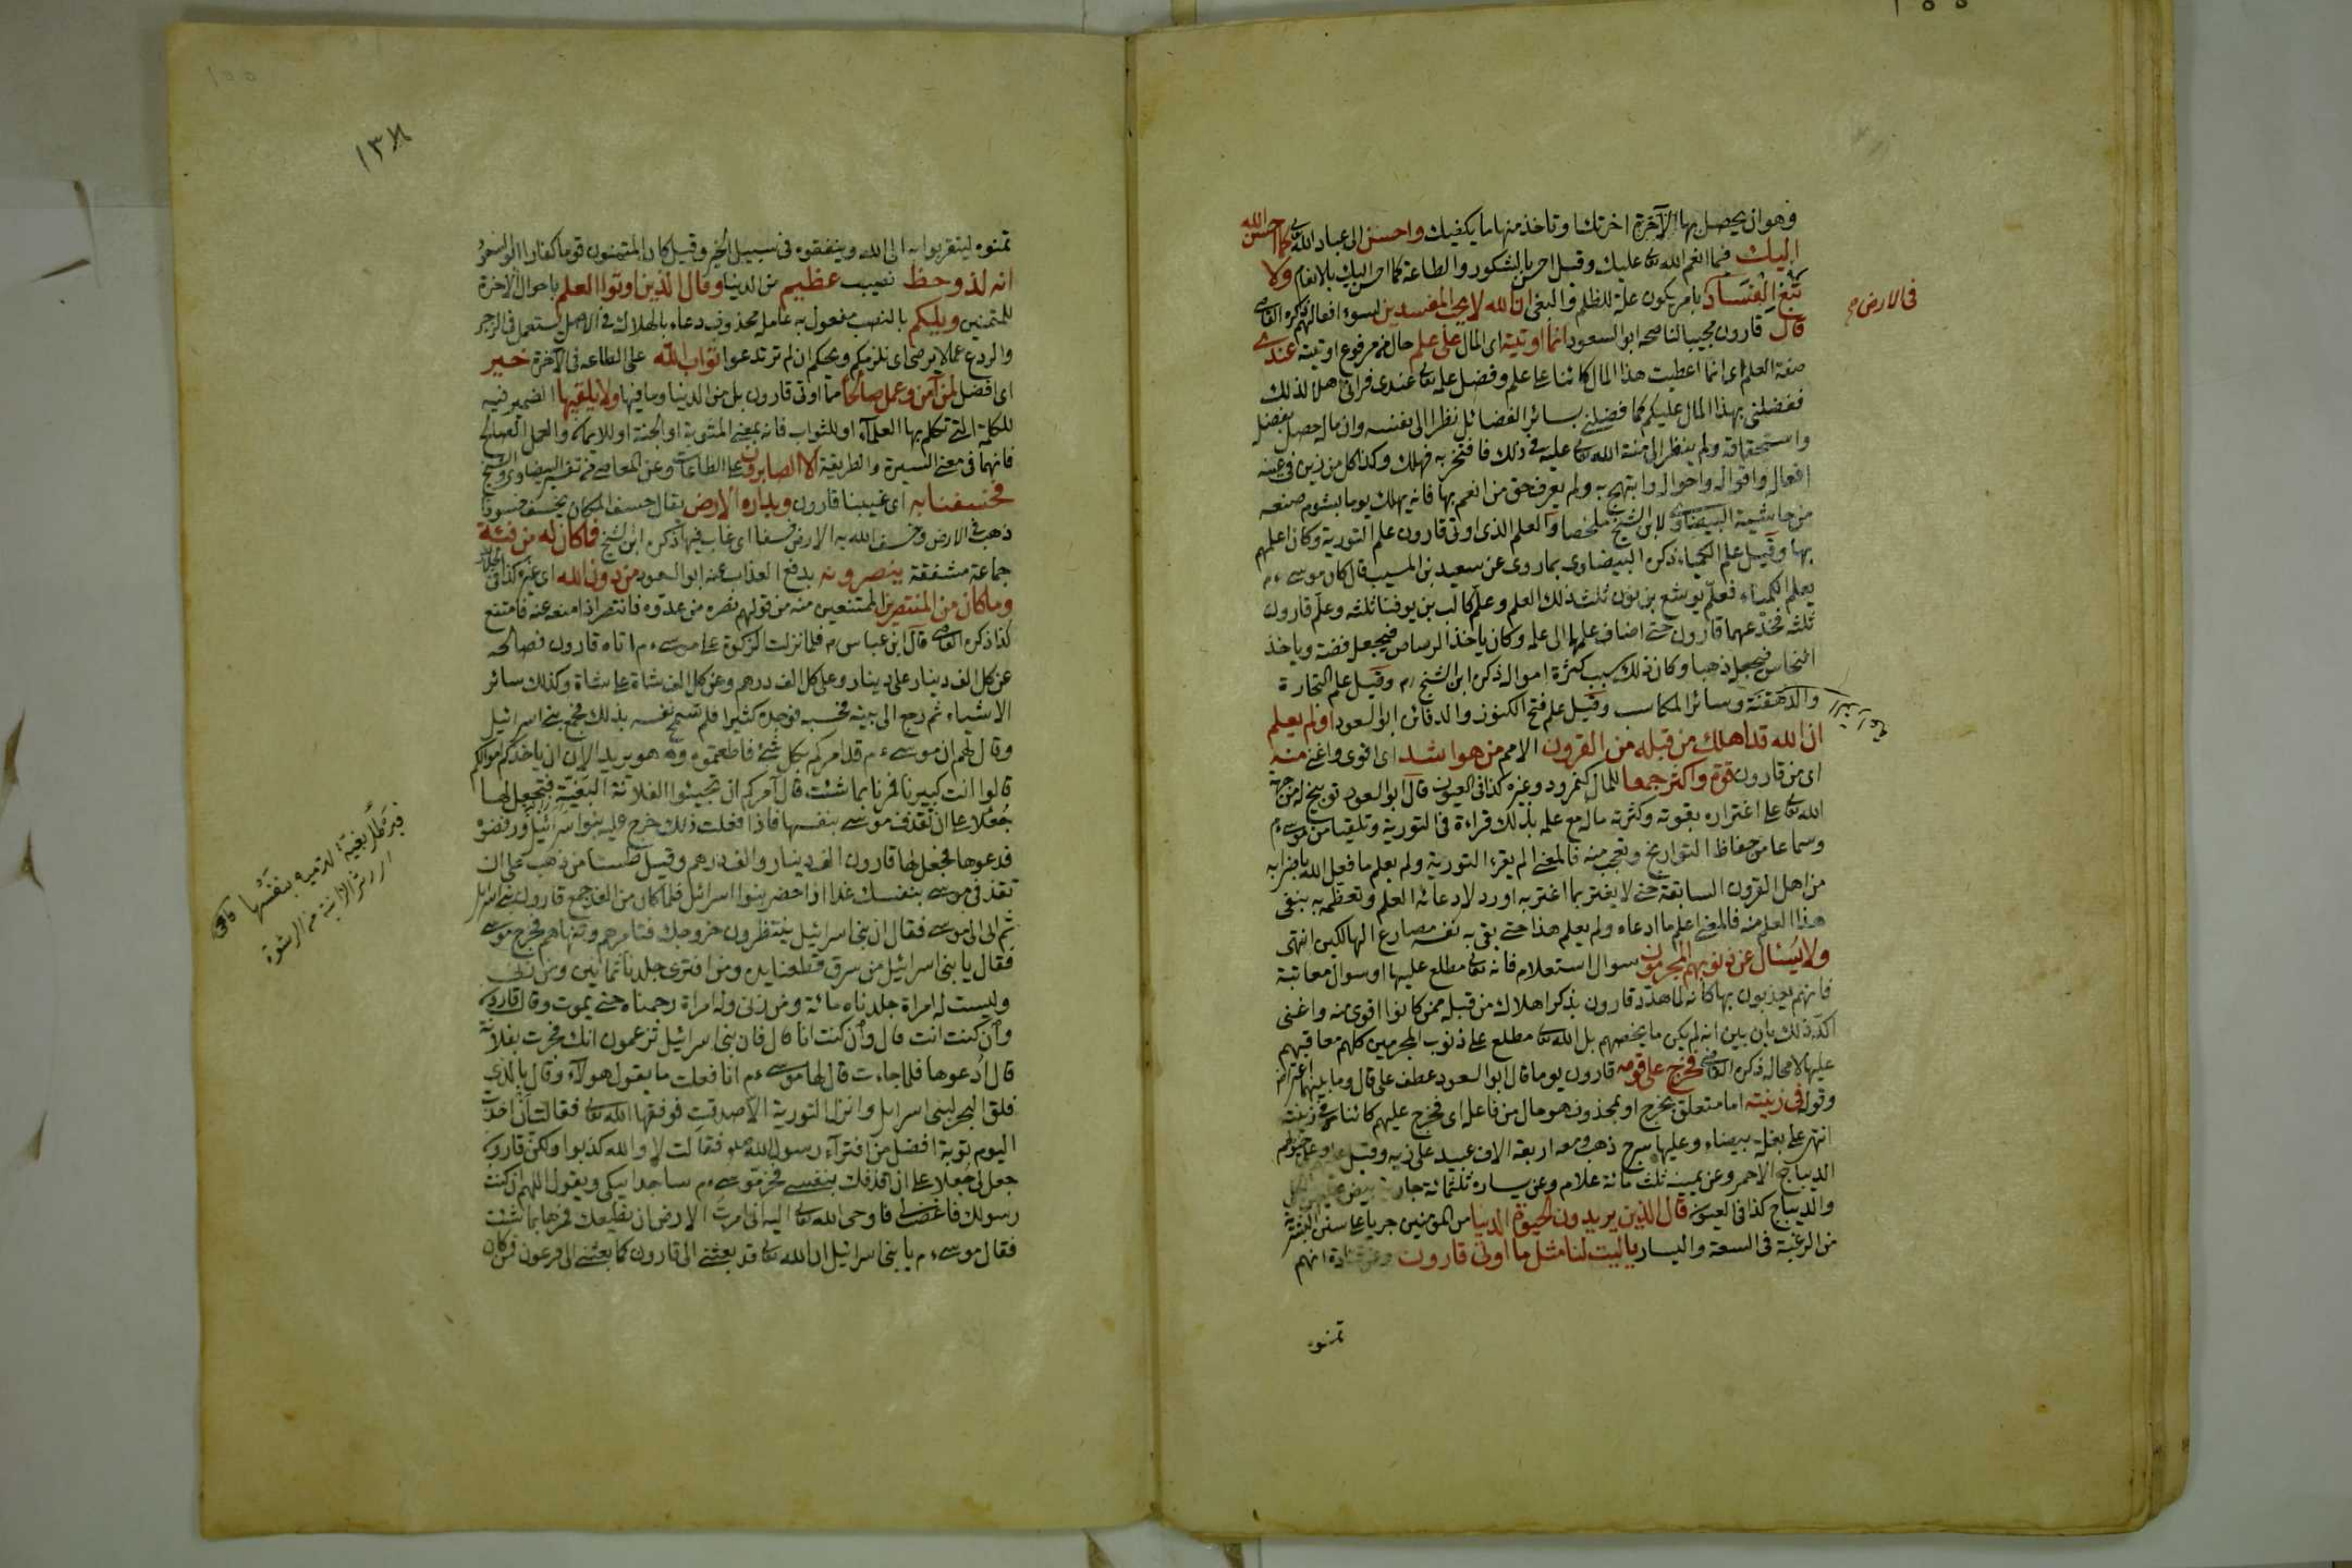 فهو ان يحصل بها الآخرة اخرتك وتاخذ منها ما يكفيك واحسن الى عباد الله كما احسن الله
اليك فيما انعم الله تعا عليك وقيل احسن بالشكور والطاعة كما احسن اليك بالانعام ولا
تبغ الفساد بامر يكون علة للظلم والبغي ان الله لا يحب المفسدين لسوء افعالهم ذكره القاضي
فى الارض
قال قارون مجيبا لناصحه ابو السعود انما اوتيته اى المال على علم حال من مرفوع اوتيته عندى
صفة العلم اى انما اعطيت هذا المال كائنا على علم وفضل علمه تعالى عندى فرانى اهلا لذلك
ففضلنى بهذا المال عليكم كما فضلنى بسائر الفضائل نظرا الى نفسه وان ماله حصل بفضل
واستحقاقه ولم ينظر الى منة الله تعالى عليه فى ذلك فافتخر به فهلك وكذا كل من زين فى عينه
افعاله واقواله واحواله وابتهج به ولم يعرف حق من انعم بها فانه يهلك يوما بشوم صنعه
من حاشية البيضاوى لابن الشيخ ملخصا والعلم الذى اوتى قارون علم التورية وكان اعلمهم
بها وقيل علم الكيمياء ذكره البيضاوى بما روى عن سعيد بن المسيب قال كان موسى ءم
يعلم الكمياء فعلم يوشع بن نون ثلث ذلك العلم وعلم كالب بن يوفنا ثلثه وعلم قارون
ثلثه فخدعهما قارون حتى اضاف علمهما الى علمه وكان ياخذ الرصاص فيجعل فضة وياخذ
النحاس فيجعل ذهبا وكان ذلك سبب كثرة امواله ذكره ابن الشيخ رم وقيل علم التجارة
والدهقنة وسائر المكاسب وقيل علم فتح الكنوز والدفائن ابو السعود اولم يعلم
ان الله قد اهلك من قبله من القرون الامم من هو اشد اى اقوى واغنى منه
اى من قارون قوة واكثر جمعا للمال كنمرود وغيره كذا فى العيون قال ابو السعود توبيخ له من جهة
الله تعالى على اغتراره بقوته وكثرته ماله مع علمه بذلك قراءة فى التورية وتلقيا من موسى ءم
وسماعا من حفاظ التواريخ وتعجب منه فالمعنى الم يقرء التورية ولم يعلم ما فعل الله باضرابه
من اهل القرون السابقة حتى لا يغتر بما اغتر به او رد لادعائه العلم وتعظمه به بنفى
هذا العلم منه فالمعنى اعلم ما ادعاه ولم يعلم هذا حتى يقى به نفسه مصارع الهالكين انتهى
ولا يسئل عن ذنوبهم المجرمون سوال استعلام فانه تعالى مطلع عليها او سوال معاتبة
فانهم يعذبون بها كانه لما هدد قارون بذكر اهلاك من قبله ممن كانوا اقوى منه واغنى
اكد ذلك بان بين انه لم يكن ما يخصهم بل الله تعا مطلع على ذنوب المجرمين كلهم معاقبهم
عليها لا محالة ذكره القاضى فخرج على قومه قارون يوما قال ابو السعود عطف على قال وما بينهما اعتراض
وقوله فى زينته اما متعلق بخرج او بمحذوف هو حال من فاعله اى فخرج عليهم كائنا فى زينته
انتهى على بغلة بيضاء وعليها سرج ذهب ومعه اربعة الاف عبيد على زيه وقيل
الديباج الاحمر وعن يمينه ثلث مائة غلام وعن يساره ثلثمائة جارية بيض
والديباج كذا فى العيون قال الذين يريدون الحيوة الدنيا من المؤمنين جريا على سنن البشرية
من الرغبة فى السعة واليسار يا ليت لنا مثل ما اوتى قارون وعن قتادة انهم
تمنوه
١٣٨
تمنوه ليتقربوا به الى الله وينفقوه فى سبيل الخير وقيل كان المتمنون قوما كفارا ابو السعود
انه لذو حظ نصيب عظيم من الدنيا وقال الذين اوتوا العلم باحوال الآخرة
للمتمنين ويلكم بالنصب مفعول به عامله محذوف دعاء بالهلاك فى الاصل يستعمل فى الزجر
والردع عما لا يرضى اى نلزمكم ويحكم ان لم ترتدعوا ثواب الله على الطاعه فى الآخرة خير
اى افضل لمن آمن وعمل صالحا مما اوتى قارون بل من الدنيا وما فيها ولا يلقيها الضمير فيه
للكلمة التى تكلم بها العلماء او للثواب فانه بمعنى المثوبة او الجنة او للايمان والعمل الصالح
فانهما فى معنى السيرة والطريقة الا الصابرون على الطاعات وعن المعاصى من تفسير البيضاوى والشيخ
فخسفنا به اى غيبنا قارون وبداره الارض يقال خسف المكان يخسف خسوفا
ذهب فى الارض وخسف الله به الارض خسفا اى غاب فيها ذكره ابن الشيخ فما كان له من فئة
جماعة مشفقة ينصرونه بدفع العذاب عنه ابو السعود من دون الله اى غيره كذا فى الجلالين
وما كان من المنتصرين الممتنعين منه من قولهم نصره من عدوه فانتصر اذا منعه عنه فامتنع
كذا ذكره القاضى قال ابن عباس رم فلما نزلت الزكوة على موسى ءم اتاه قارون فصالحه
عن كل الف دينار على دينار وعلى كل الف درهم وعن كل الف شاة على شاة وكذلك سائر
الاشياء ثم رجع الى بيته فحسبه فوجده كثيرا فلم تسمح نفسه بذلك فجمع بنى اسرائيل
وقال لهم ان موسى ءم قد امركم بكل شئ فاطعتموه وهو يريد الان ان ياخذ كم اموالكم
قالوا انت كبيرنا فمرنا بما شئت قال آمركم ان تجيئوا الفلانة البغية فتجعل لها
جعلا على ان تقذف موسى بنفسها فاذا فعلت ذلك خرج عليه بنوا اسرائيل ورفضوه
فدعوها فجعل لها قارون الف دينار والف درهم وقيل طستا من ذهب على ان
تقذفى موسى بنفسك غدا اذا حضر بنوا اسرائيل فلما كان من الغد جمع قارون بنى اسرائيل
ثم اتى الى موسى فقال ان بنى اسرائيل ينتظرون خروجك فتامرهم وتنهاهم فخرج موسى
فقال يا بنى اسرائيل من سرق قطعنا يده ومن افترى جلدناه ثمانين ومن زنى
وليست له امراة جلدناه مائة ومن زنى وله امراة رجمناه حتى يموت وقال قارون
وان كنت انت قال وان كنت انا قال فان بنى اسرائيل تزعمون انك فجرت بفلانة
قال ادعوها فلما جاءت قال لها موسى ءم انا فعلت ما يقول هولاء وقال بالذى
فلق البحر لبنى اسرايل وانزل التورية الا صدقت فوفقها الله تعالى فقالت ان احدث
اليوم توبة افضل من افتراء رسول الله فقالت لا والله كذبوا ولكن قارون
جعل لى جعلا على ان اقذفك بنفسى فخر موسى ءم ساجدا يبكى ويقول اللهم ان كنت
رسولك فاغضب لى فاوحى الله تعالى اليه انى امرت الارض ان تطيعك فمرها بما شئت
فقال موسى ءم يا بنى اسرائيل ان الله تعالى قد بعثنى الى قارون كما بعثنى الى فرعون فمن كان